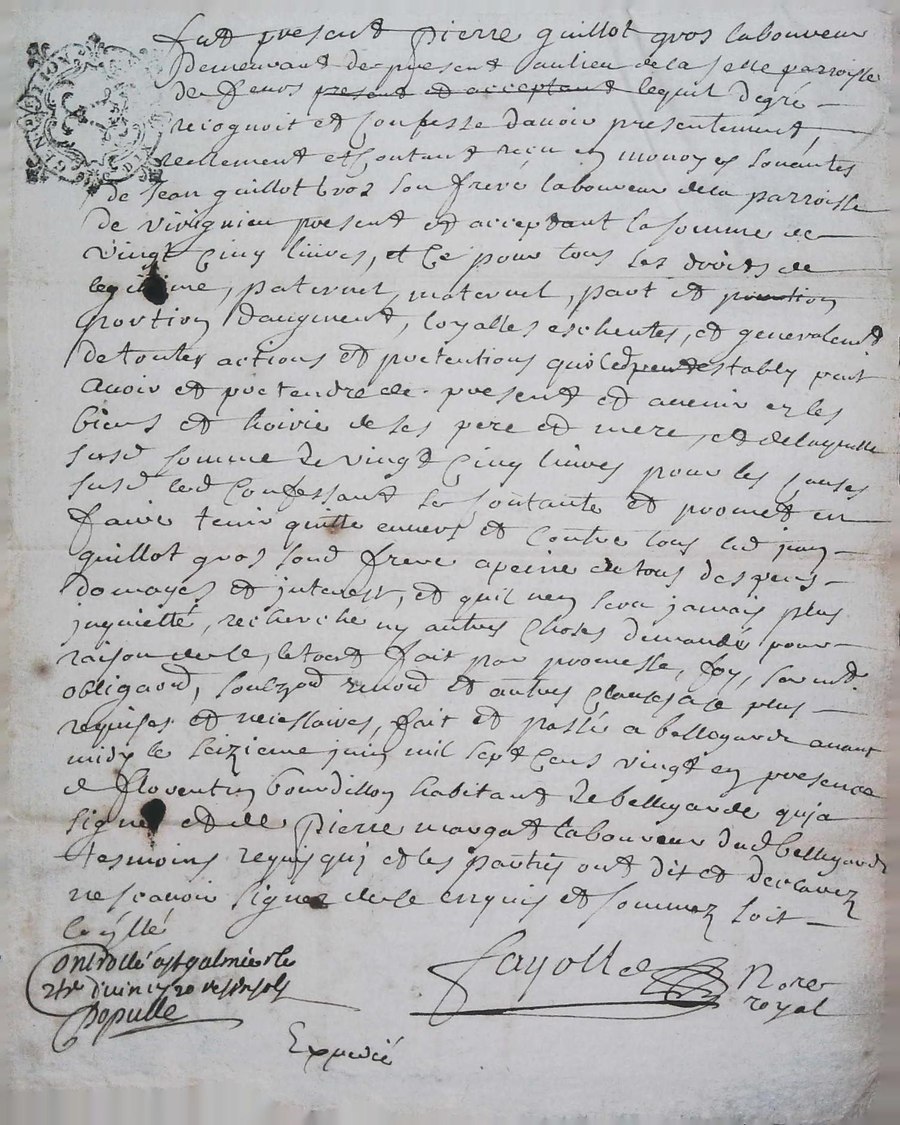 GEN[ER] DE LYON
fut present Pierre guillot gros laboureur
demeurant de present au lieu de la selle parroisse
de feurs present et acceptant lequel de gré
recognoit et Confesse d'avoir presentement,
reellement et Contant reçu en monoyes
de Jean guillot gros son frere laboureur de la parroisse
de virignieu present et acceptant la somme de
vingt Cinq livres, et Ce pour tous les droits de
legitime, paternel, maternel, part et portion
portion d'augment, loyalles escheutes, et generalemt
de toutes actions et pretentions peut
avoir et pretendre de present et avenir ez les
biens et hoirie de ses pere et mere, et de laquelle
susd somme de vingt Cinq livres pour les Causes
susd led Confessant se Contante et promet en
faire tenir quitte envers et Contre tous led jean
guillot gros sond frere a peine de tous despens
domages et interest, et quil n'en sera jamais plus
inquietté, recherché ny autres Choses demandé pour
raison de ce, le tout fait par promesse, foy, sermt
obligaond, renond et autres Clauses a ce plus
requises et necessaires, fait et passé a bellegarde avant
midy le seizieme juin mil sept Cens vingt en presence
de florentin bourdillon habitant de bellegarde qui a
signé et de Pierre margat laboureur dud bellegarde
tesmoins requis qui et les parties ont dit et declarez
ne scavoir signer de ce enquis et sommez soit
Controllé a st galmier le
Populle
fayolle Nore
royal
Expedié